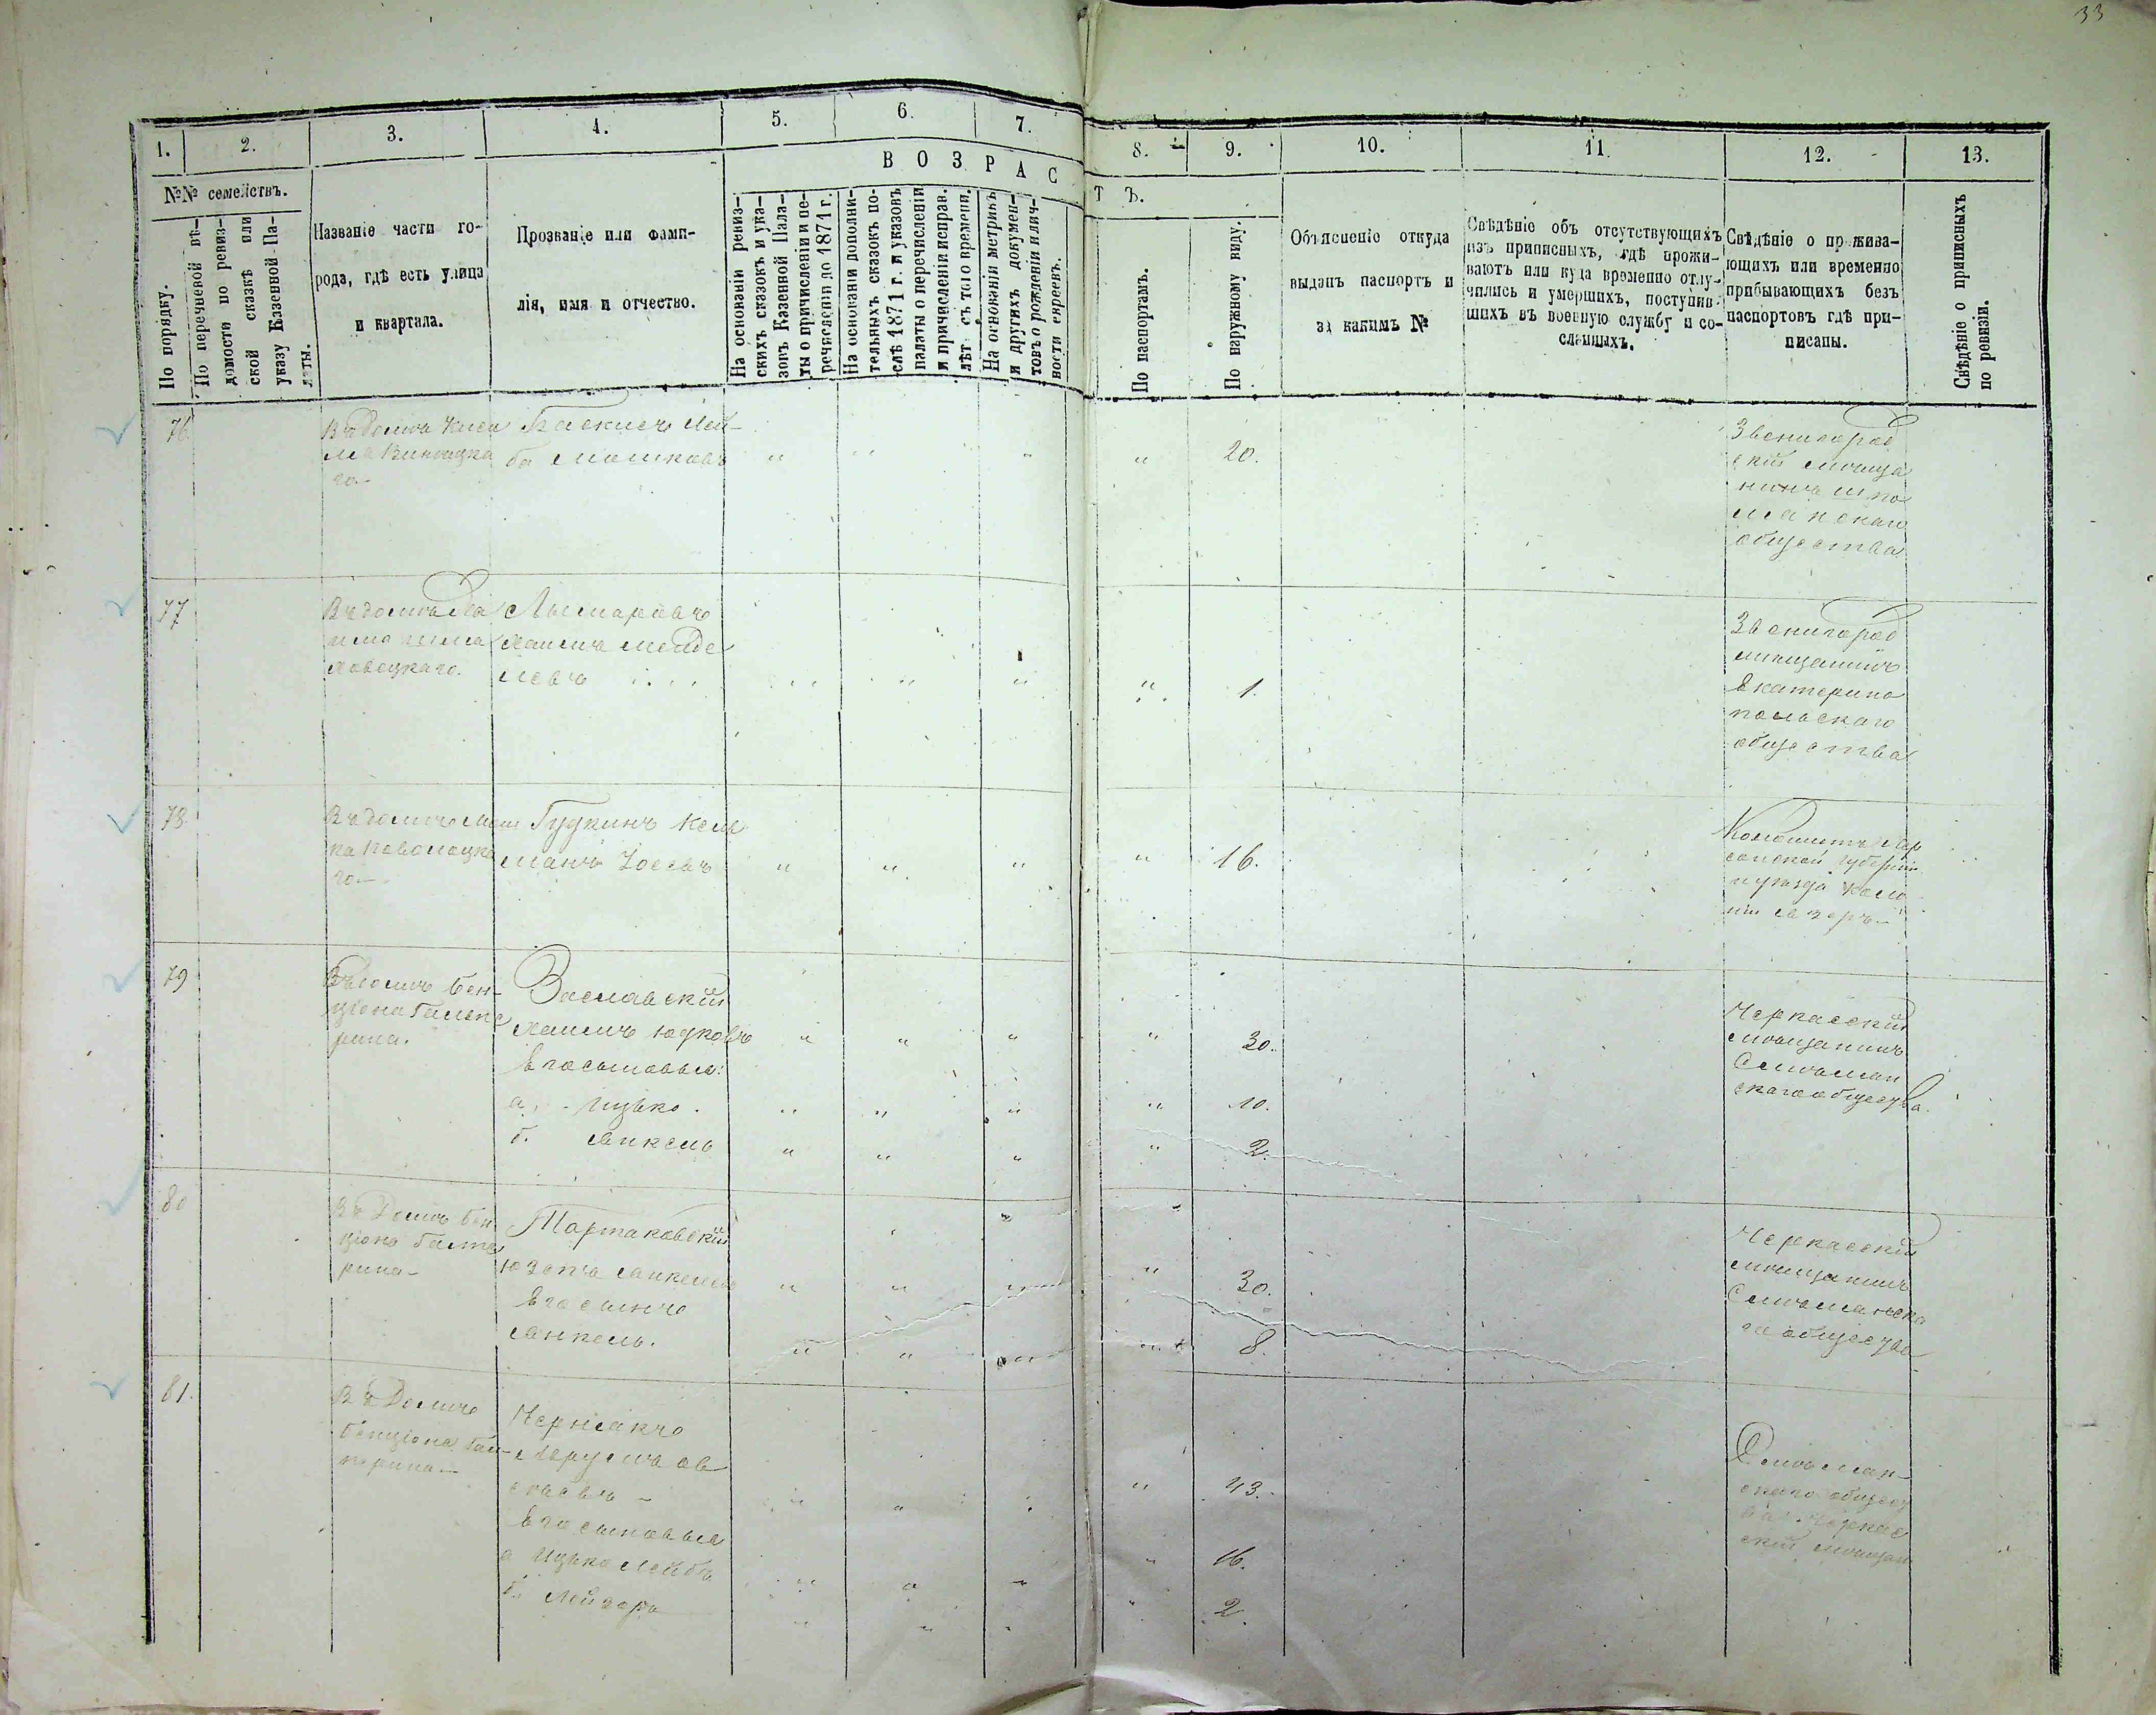 33
1.
2.
3.
4.
5.
6.
7.
8.
9.
10.
11.
12.
13.
№№ семействъ.
По порядку.
По перечневой вѣ-
домости по ревиз-
ской сказкѣ или
указу Казенной Па-
латы.
Названіе части го-
рода, гдѣ есть улица
и квартала.
Прозваніе или фами-
лія, имя и отчество.
ВОЗРАС
ТЪ.
На основаніи ревиз-
скихъ сказокъ и ука-
зовъ Казенной Пала-
ты о причисленіи и пе-
речисленіи до 1871 г.
На основаніи дополни-
тельныхъ сказокъ по-
слѣ 1871 г. и указовъ
палаты о перечисленіи
и причисленіи исправ.
лѣт съ того времени.
На основаніи метрикъ
и другихъ докумен-
товъ о рожденіи и лич-
ности евреевъ.
По паспортамъ.
По наружному виду.
Объясненіе откуда
выданъ паспортъ и
за какимъ №
Свѣдѣніе объ отсутствующихъ
изъ приписныхъ, гдѣ прожи-
ваютъ или куда временно отлу-
чились и умершихъ, поступив-
шихъ въ военную службу и со-
сланныхъ.
Свѣдѣніе о прожива-
ющихъ или временно
прибывающихъ безъ
паспортовъ гдѣ при-
писаны.
Свѣдѣніе о приписныхъ
по ревизіи.
76
Въ домѣ
го
Баскисъ Лей-
ба Мошковъ
20.
Звенигород
скій мѣща
нинъ Шпо
лянскаго
общества
77
Въ домѣ
Хаимъ Менде
левъ
1.
Звенигород
мѣщанинъ
Екатерино
польскаго
общества
78
Въ домѣ Мош
ка
го
Гудкинъ Кель
манъ Іосевъ
16.
Колонистъ Хер
сонской губерніи
и уѣзда коло
ніи
79
Въ домѣ Бен-
ціона Гальпе
рина.
Заславскій
Хаимъ Юдковъ
Его сыновья:
а, Ицько.
б. Янкель
30.
10.
2.
Черкасскій
мѣщанинъ
Смѣлян
скаго общества.
80
Въ Домѣ Бен
ціона Гальпе
рина
Тартаковскій
Юзепъ Янкелев
Его сынъ
Янкель.
30.
8.
Черкасскій
мѣщанинъ
Смѣлянска
го общества
81.
Въ Домѣ
Бенціона Галь-
перина
Чернякъ
Его сыновья
а Ицько Лейбъ
б. Лейзоръ
43.
16.
2.
Смѣлян-
скаго общест
ва Черкас
скій мѣщан